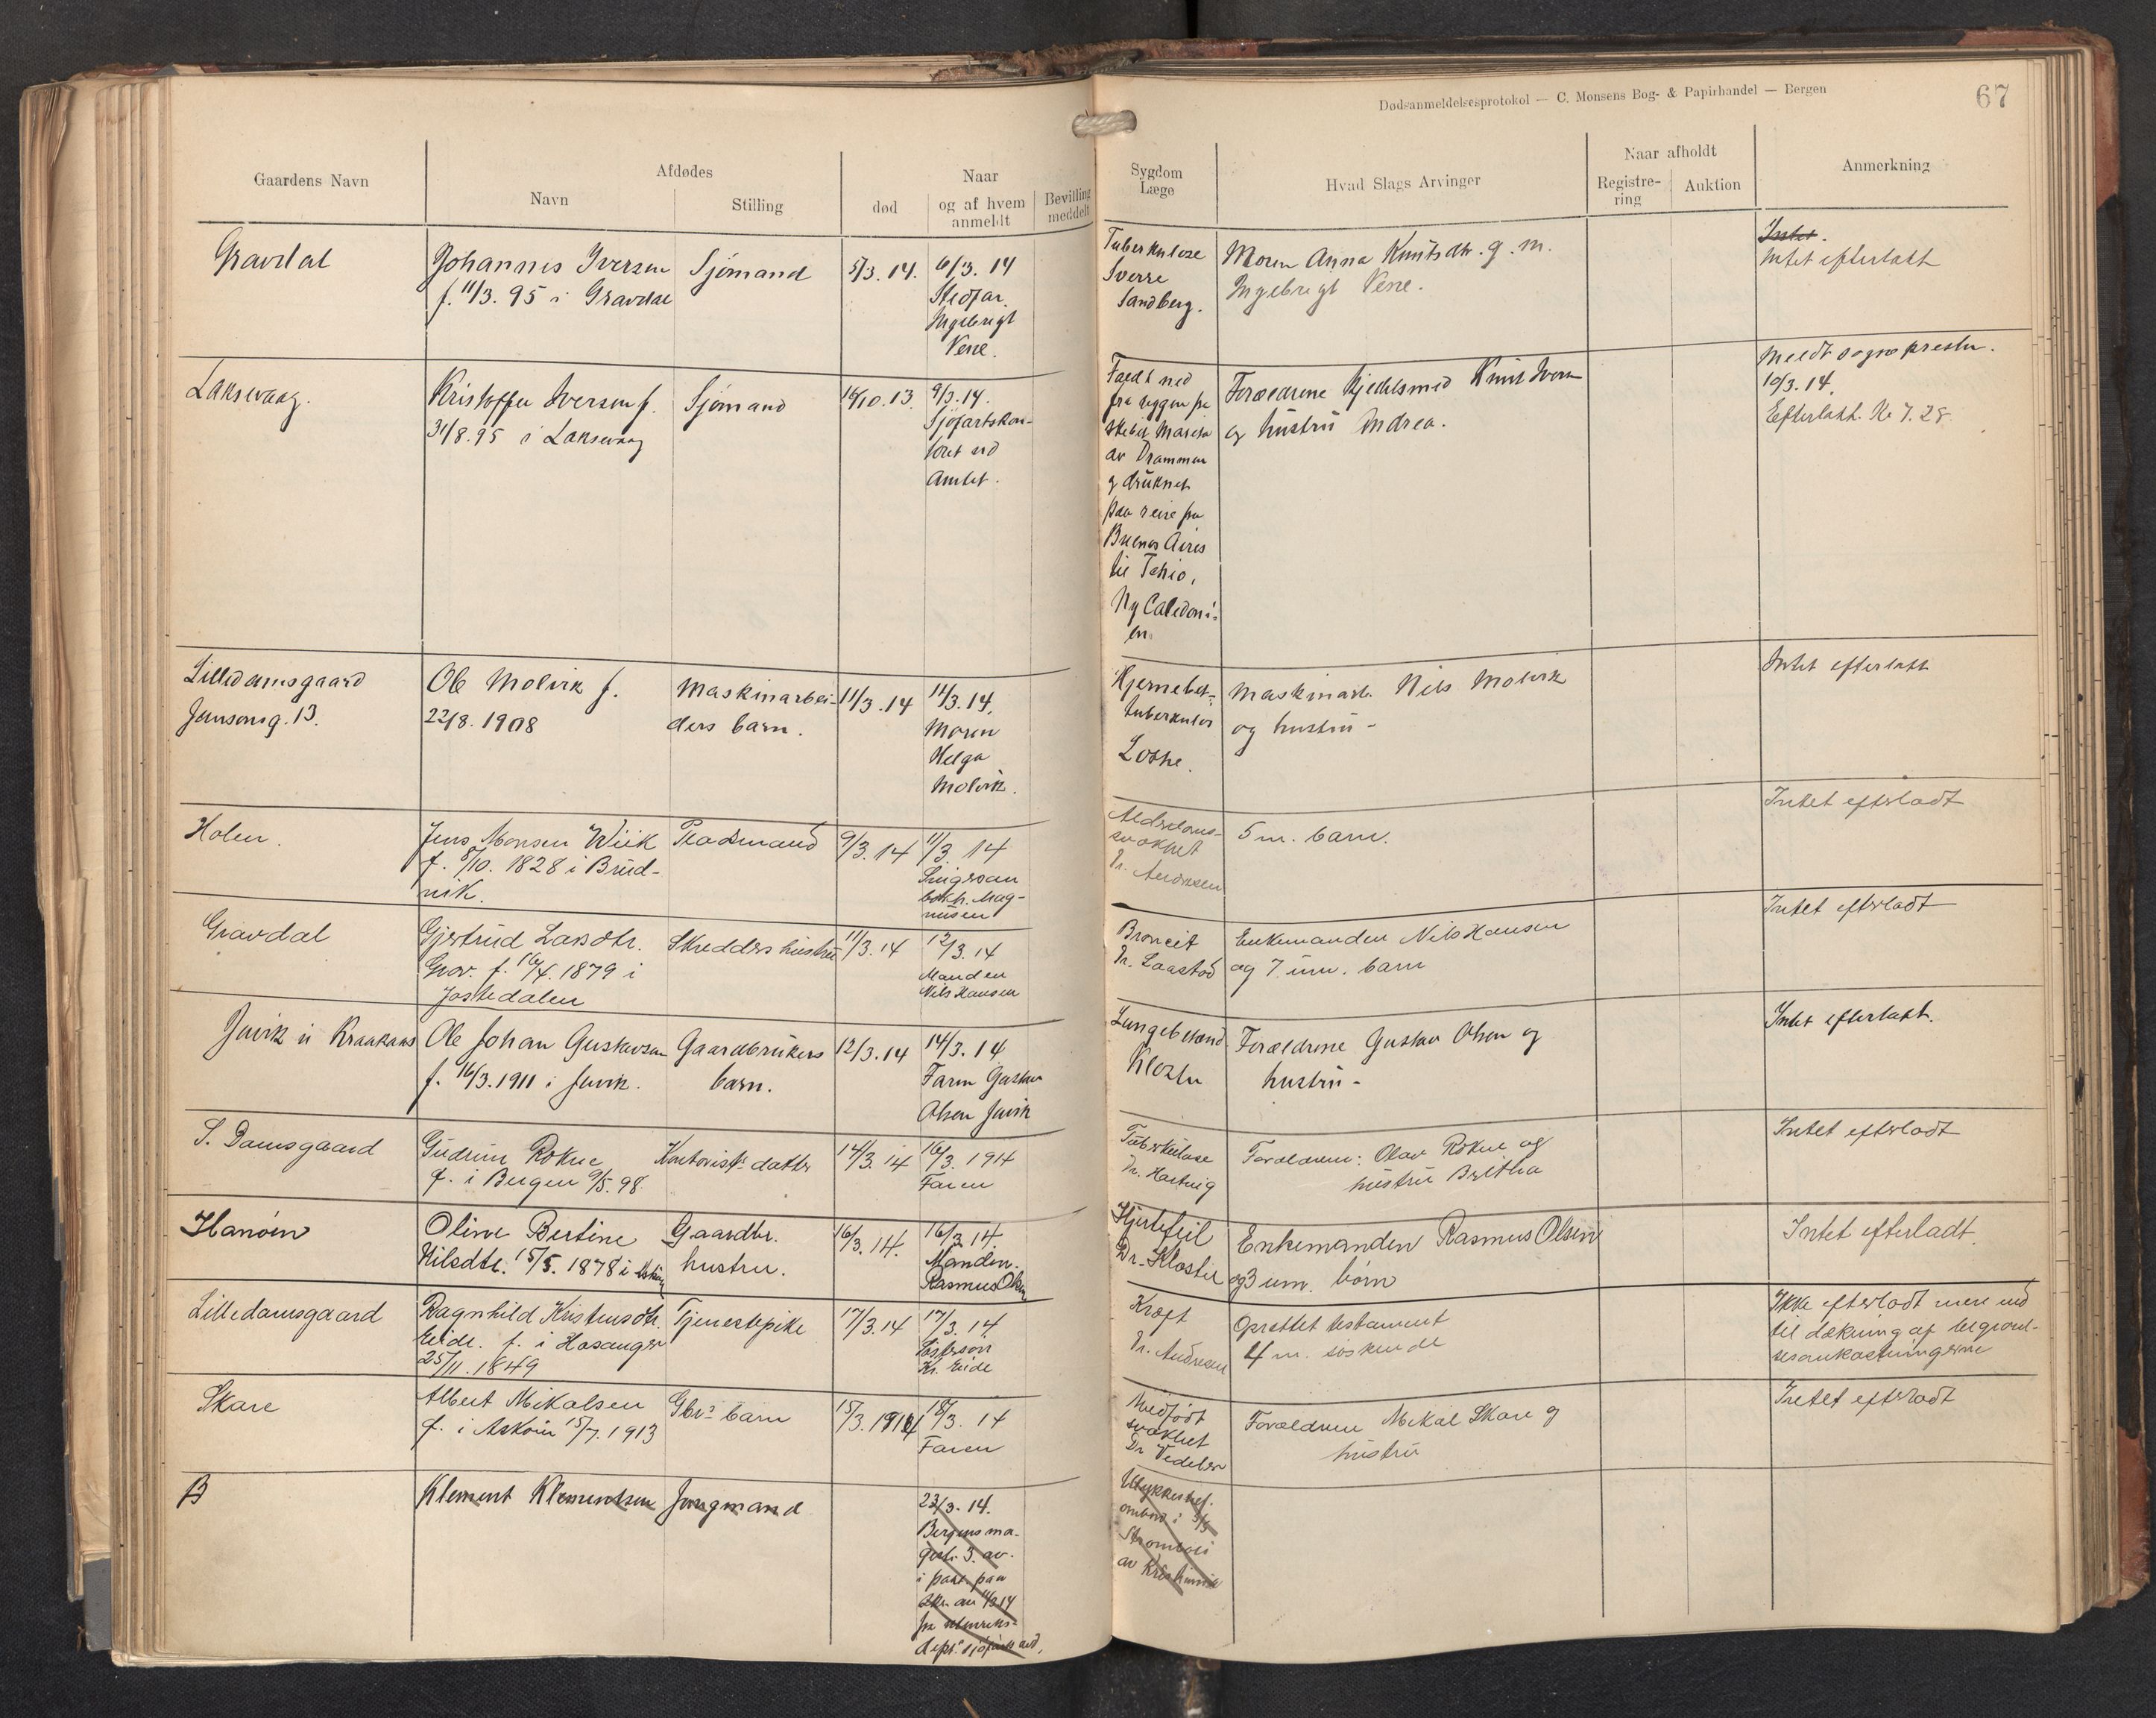 Dødsanmeldelsesprotokol — C. Monsens Bog- & Papirhandel — Bergen
67
Gaardens Navn
Afdødes
Navn
Stilling
død
Naar
og af hvem
anmeldt
Bevilling
meddelt
Sygdom
Læge
Hvad Slags Arvinger
Naar afholdt
Registre-
ring
Auktion
Anmerkning
Gravdal
Johannes Iversen
f. 11/3. 95 i Gravdal
Sjømand
5/3. 14.
6/3. 14
Stedfar
Ingebrigt
Tuberkulose
Sverre
Sandberg.
Moren Anna Knutsdtr. g. m.
Ingebrigt
Intet.
Intet efterlatt
Laksevaag.
Kristoffer Iversen f.
31/8. 95 i Laksevaag
Sjømand
16/10. 13.
9/3. 14.
Sjøfartskon-
toret ved
Amtet.
Faldt ned
fra riggen paa
skibet
av Drammen
og druknet
paa reise fra
Buenos Aires
til Tchio,
Ny Caledoni-
en.
Forældrene Kjedelsmed Knut Iversen
og hustru Andrea.
Meldt sognepresten.
10/3. 14.
Efterlatt. Kr 7.28
Lilledamsgaard
Jansonsg. 13.
Ole Molvik f.
22/8. 1908
Maskinarbei-
ders barn.
11/3. 14
14/3. 14.
Moren
Helga
Molvik.
Hjernebet.
tuberkulos
Maskinarb. Nils Molvik
og hustru -
Intet efterlatt
Holen.
Jens Monsen Wiik
f. 8/10. 1828 i Brud-
vik.
9/3. 14
11/3. 14
Svigersøn
bokh. Mag-
nusen
Alderdoms-
svakhet
Dr. Andresen
5 m. barn.
Intet efterladt
Gravdal
Gjertrud Larsdtr.
f. 16/4. 1879 i
Jostedalen
Skredders hustru
11/3. 14
12/3. 14
Manden
Nils Hansen
Broncit
Dr. Laastad
Enkemanden Nils Hansen
og 7 um. barn
Intet efterladt
Juvik u Kraakaas
Ole Johan Gustavsen
f. 16/3. 1911 i Juvik.
Gaardbrukers
barn.
12/3. 14
14/3. 14
Faren Gustav
Olsen Juvik
Lungebetænd
Kloster
Forældrene Gustav Olsen og
hustru -
Intet efterlatt.
S. Damsgaard
Gudrun Rokne
f. i Bergen 9/5. 98.
Kontorists datter
14/3. 14
16/3. 1914
Faren
Tuberkulose
Dr. Hartvig
Forældrene: Olav Rokne og
hustru Britha
Intet efterladt
Hanøen
Oline Bertine
Nilsdtr. 15/5. 1878 i
Gaardbr.
hustru.
16/3. 14.
16/3 14
Manden.
Rasmus Olsen
Hjertefeil
Dr. Kloster
Enkemanden Rasmus Olsen
og 3 um. børn
Intet efterladt.
Lilledamsgaard
Ragnhild Kristensdtr.
Eide. f. i Hosanger
25/11. 1849
Tjenestepike
17/3. 14
17/3. 14
Søstersøn
Kr. Eide
Kræft
Dr. Andresen
Oprettet testament
4 m. søskende
Ikke efterladt mere end
til dækning af begravel-
sesomkostningerne
Skare
Albert Mikalsen
f. i Askøen 15/7. 1913
Gbrs barn
15/3. 1914
18/3. 14
Faren
Medfødt
svakhet
Dr Vedeler
Forældrene Mikal Skare og
hustru
Intet efterladt
B
Klement Klementsen
Jungmand
23/3. 14.
Bergens ma-
gistr. 3. av.
i paategn. paa
skr. av 14/3 14
fra utenriks-
dept.
Ulykkestilf.
ombord i S/S
av Kristiania